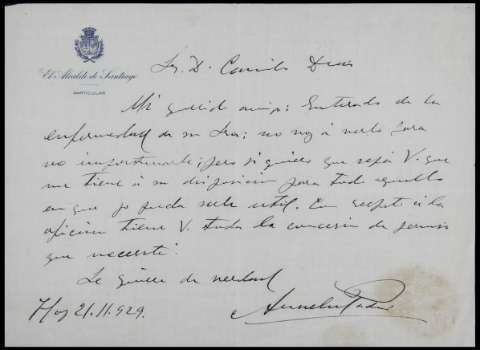 El Alcalde de Santiago
PARTICULAR
Sr. D. Camilo Diaz
Mi querido amigo: Enterado de la
enfermedad de su Sra; no voy a verle para
no importunarle; pero si quiero que sepa V. que
me tiene a su disposición para todo aquello
en que yo pueda serle util. En respecto a la
oficina tiene V. toda la concesion de permiso
que necesite.
Le quiere de verdad
Hoy 21.11.929.